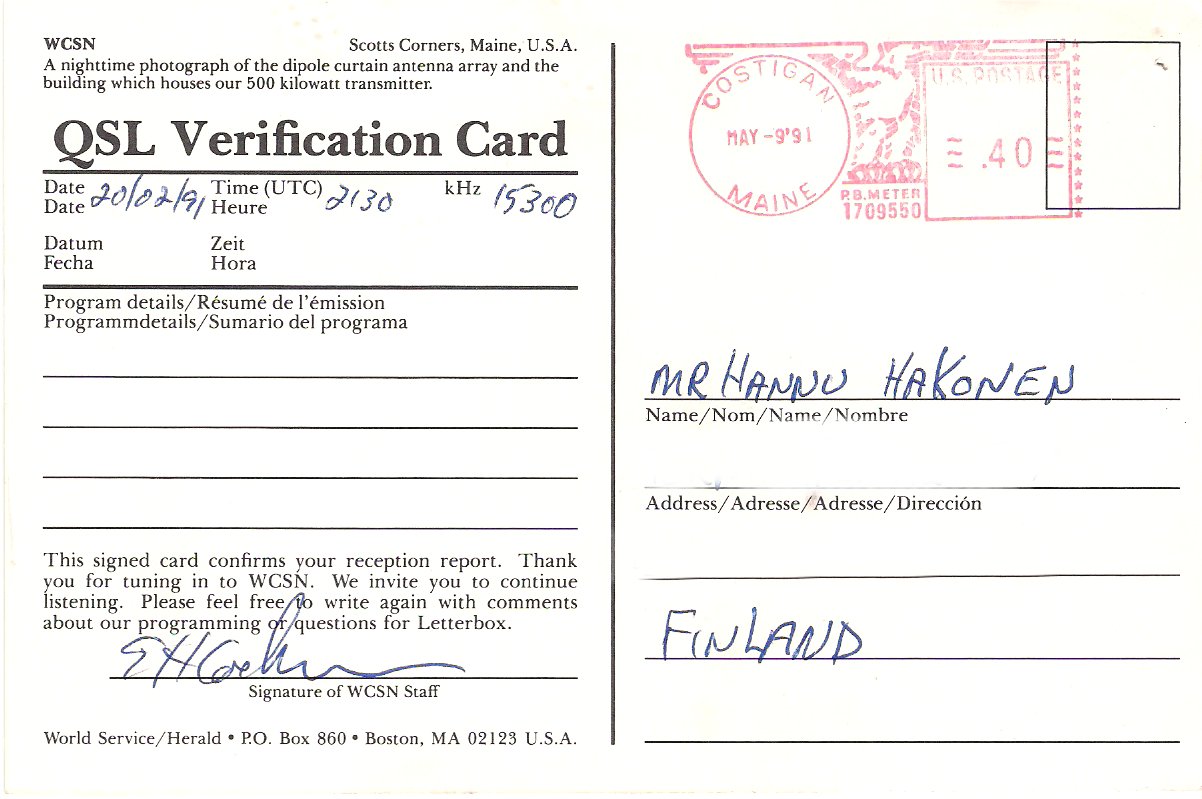 WCSN Scotts Corners, Maine, U.S.A.
A nighttime photograph of the dipole curtain antenna array and the
building which houses our 500 kilowatt transmitter.
QSL Verification Card
Date 20/02/91 Time (UTC) 2130 kHz 15300
Date Heure
Datum Zeit
Fecha Hora
Program details/Résumé de l'émission
Programmdetails/Sumario del programa
This signed card confirms your reception report. Thank
you for tuning in to WCSN. We invite you to continue
listening. Please feel free to write again with comments
about our programming or questions for Letterbox.
Signature of WCSN Staff
World Service/Herald • P.O. Box 860 • Boston, MA 02123 U.S.A.
COSTIGAN
MAY -9'91
MAINE
U.S. POSTAGE
.40
P.B. METER
1709550
MR HANNU HAKONEN
Name/Nom/Name/Nombre
Address/Adresse/Adresse/Dirección
FINLAND